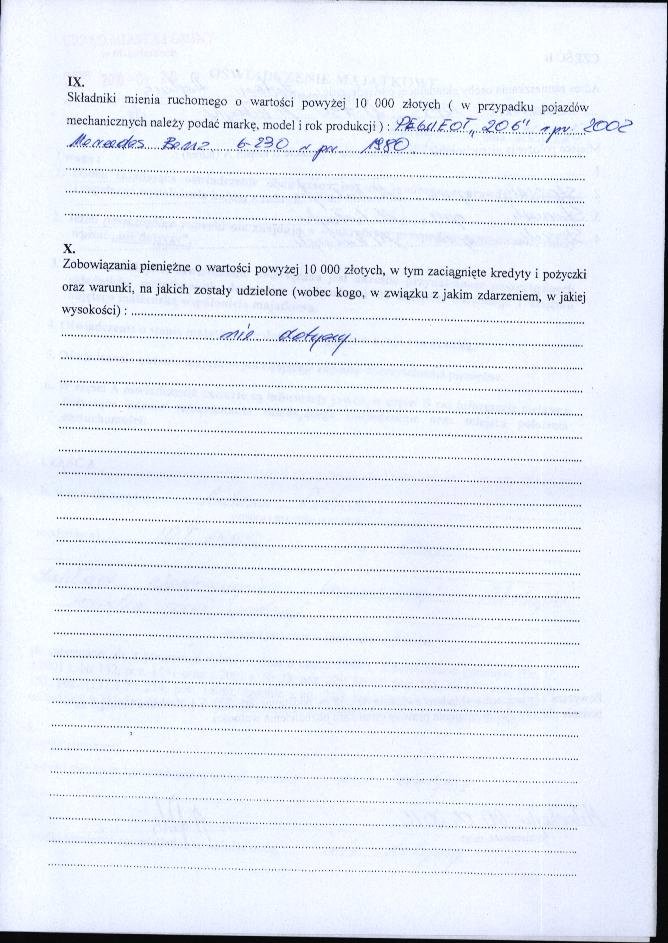 IX.
Składniki mienia ruchomego o wartości powyżej 10 000 złotych ( w przypadku pojazdów
mechanicznych należy podać markę, model i rok produkcji ) : PEUGEOT „206" r.pr. 2002
Mercedes Benz G-230 r.pr. 1980
X.
Zobowiązania pieniężne o wartości powyżej 10 000 złotych, w tym zaciągnięte kredyty i pożyczki
oraz warunki, na jakich zostały udzielone (wobec kogo, w związku z jakim zdarzeniem, w jakiej
wysokości) :
nie dotyczy